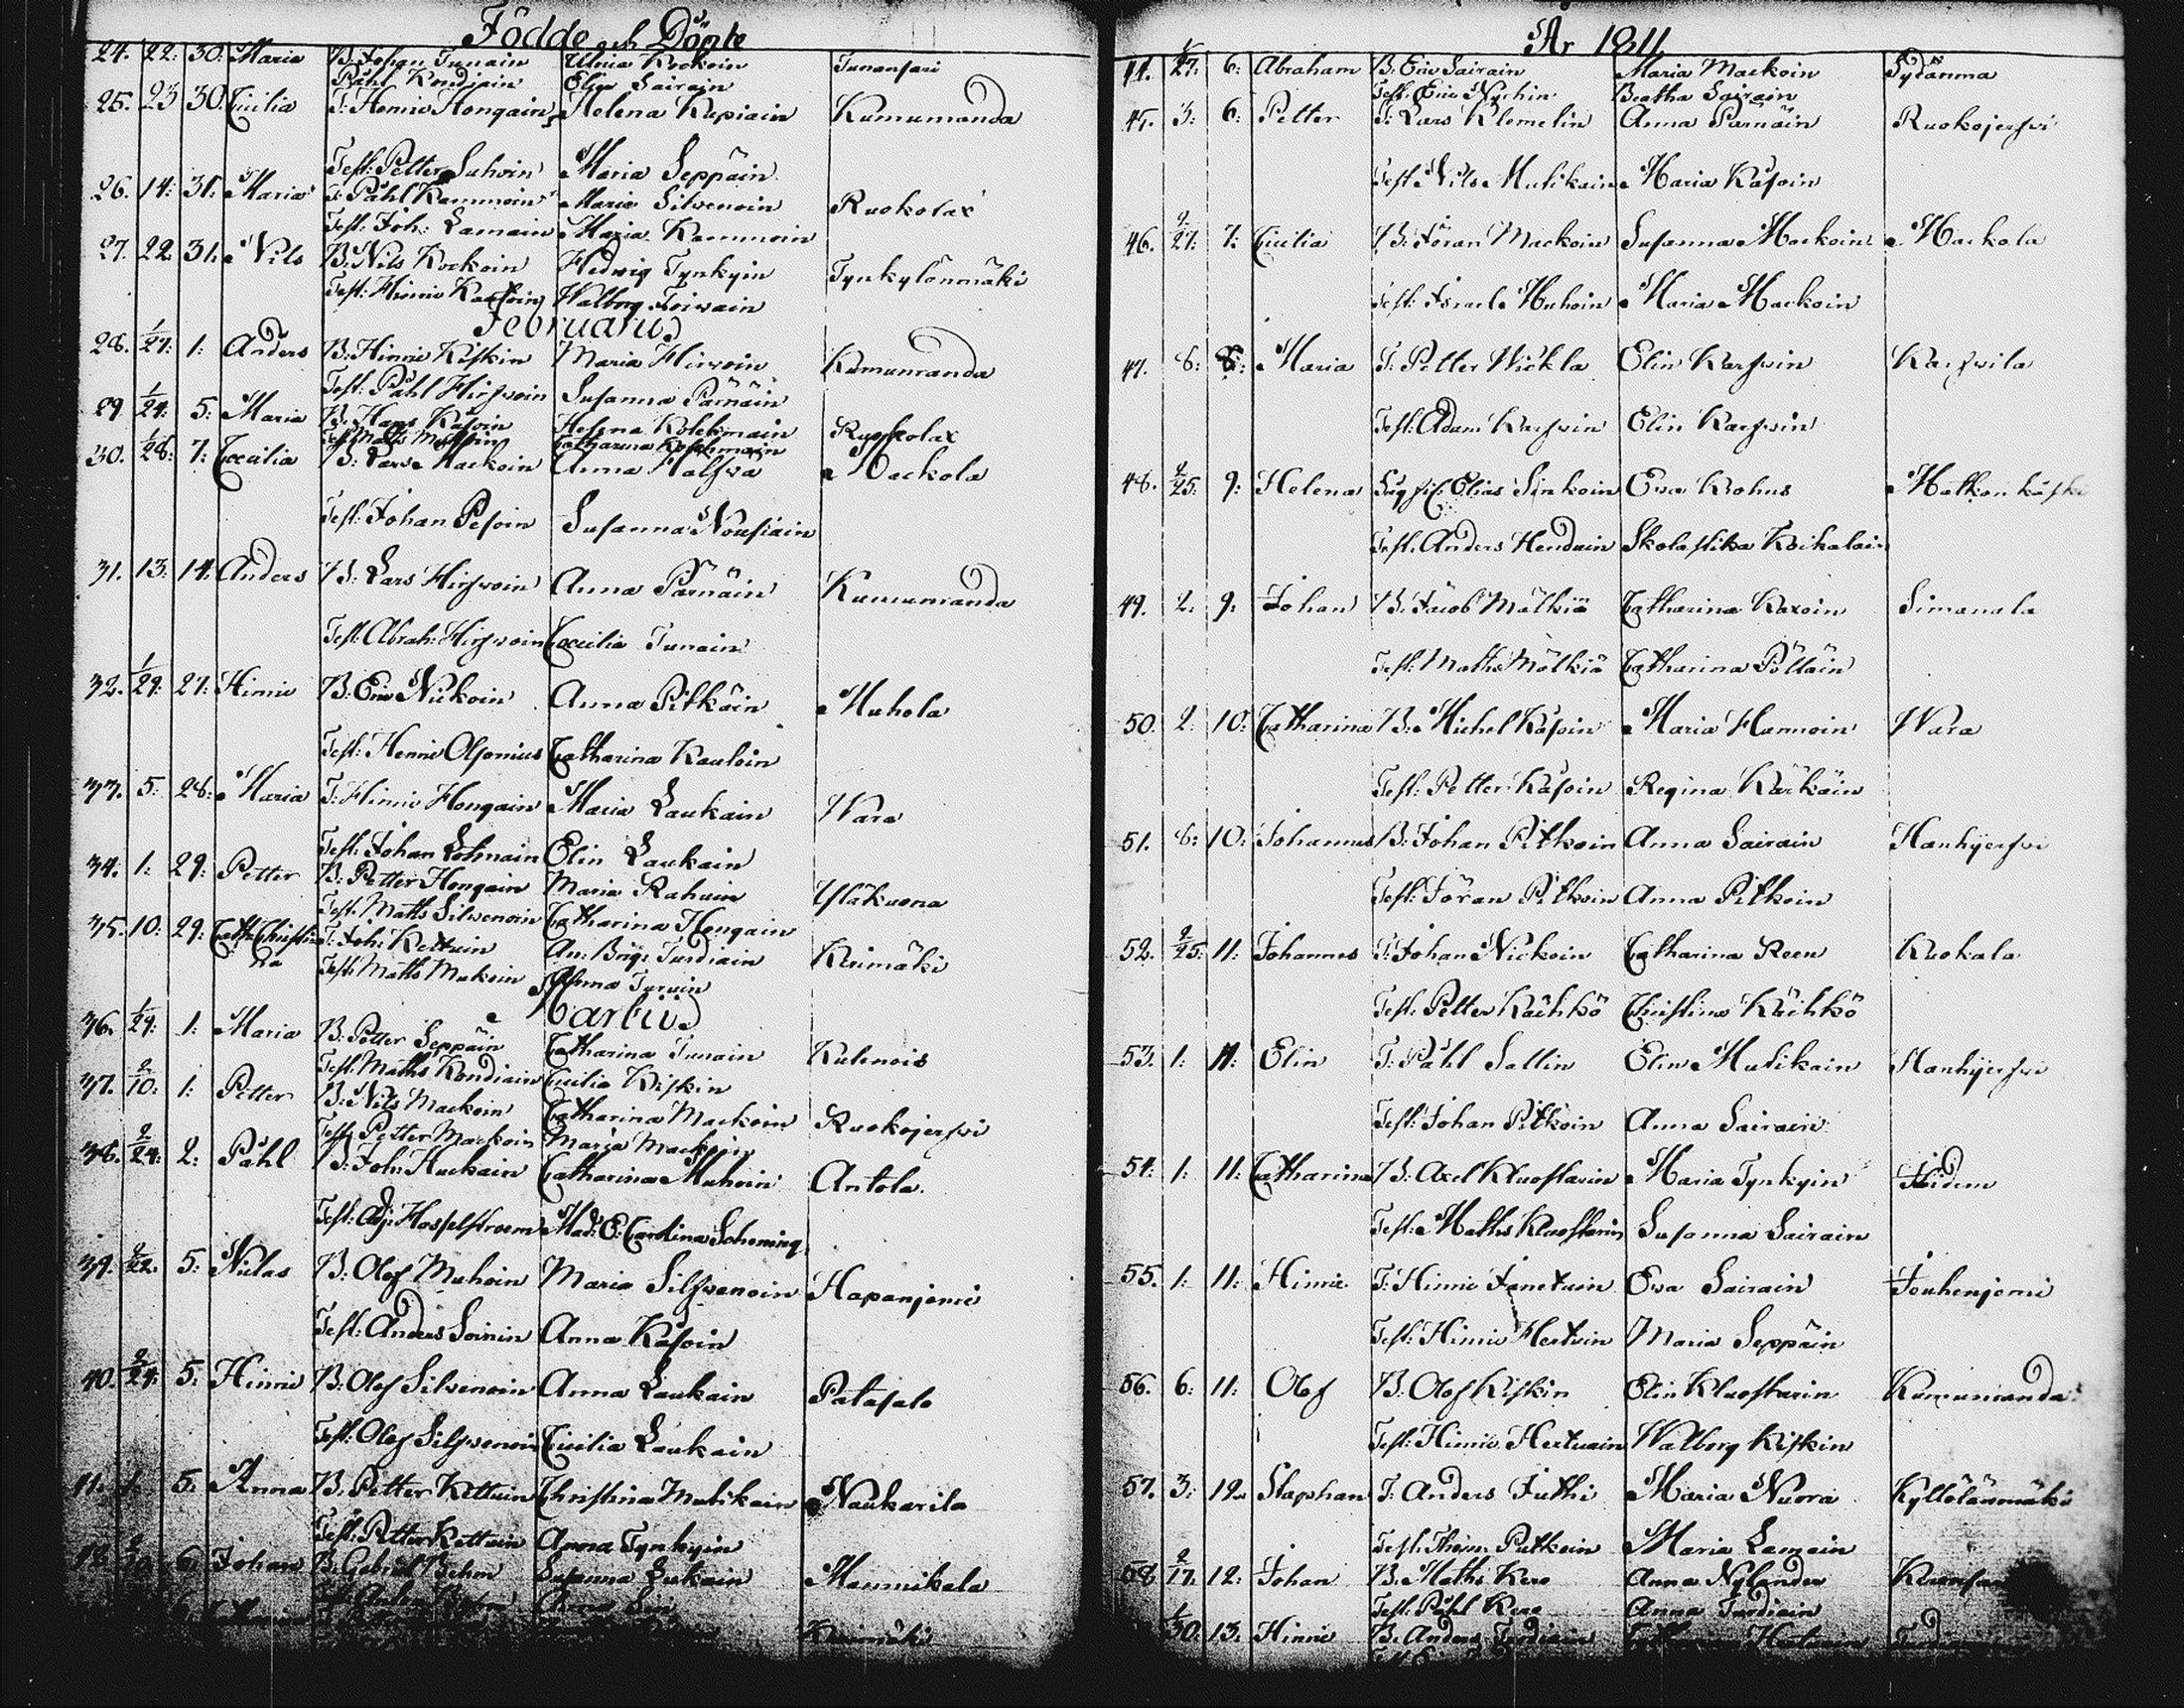 Födde och Döpte
24. 22: 30: Maria B: Johan Tunain Anna Kockoin Tunansari
Påhl Kondiain Elin Sairain
25. 23 30. Cicilia T: Henric Hongain Helena Kupiain Kumumanda
Test: Petter Suhoin Maria Seppäin
26. 14: 31. Maria T: Påhl Kammoin Maria Silvenoin Ruokolax
Test: Joh: Lamain Maria Kammoin
27. 22. 31. Nils B: Nils Kockoin Hedwig Tynkyin Tynkylönmäki
Test: Hinric Walborg Toiwain
Februarius
28. 1/27: 1: Anders B: Hinric Kiskin Maria Hirwoin Kumumanda
Test: Påhl Hirfwoin Susanna Pärnäin
29. 1/24: 5: Maria B: Hans Käsoin Helena Kolekmain Ruokolax
Test: Matts Catharina
30. 1/28: 7: Cecilia B: Lars Mackoin Anna Halfwa Mackola
Test: Johan Pesoin Susanna Nousiain
31. 13: 14: Anders B: Lars Hirfwoin Anna Pärnäin Kumumanda
Test: Abrah: Hirfwoin Cecilia Tunain
32. 1/29: 27: Hinric B: Eric Nickoin Anna Pitkäin Muhola
Test: Henric Olsonius Catharina Kauloin
33. 5: 28: Maria T: Hinric Hongain Maria Laukain Wara
Test: Johan Lohmain Elin Laukain
34. 1: 29: Petter B: Petter Hongain Maria Rahuin Ylläkuona
Test: Matts Silvenoin Catharina Hongain
35. 10: 29: Cath: Christina T: Joh: Kettuin An: Brig: Turdiain Kerimäki
Test: Matts Makoin Anna Turuin
Martius
36. 1/29: 1: Maria B: Petter Seppäin Catharina Tunain Kulenois
Test: Matts Kondiain Cecilia Kiskin
37. 2/10: 1: Petter B: Nils Mackoin Catharina Mackoin Ruokojerfvi
Test: Petter Mackoin Maria Mackoin
38. 2/24: 2: Påhl B: Joh: Huckain Catharina Muhoin Antola.
Test: Adj: Hasselstroem Mad: E: Carolina Schoening
39. 2/22. 5: Niclas B: Olof Muhoin Maria Silfwenoin Hapanjemi
Test: Anders Soinin Anna Käsoin
40. 2/24: 5: Hinric B: Olof Silvenoin Anna Laukain Patasalo
Test: Olof Silfwenoin Cicilia Laukain
41. 1. 5: Anna B: Petter Kettuin Christina Mutikain Naukarila
Test: Petter Kettuin Anna Tynkyin
6: Johan B: Gabriel Behm Susanna Laukain Mannikala
Kerimäki
År 1811.
44. 1/27: 6: Abraham B: Eric Sairain Maria Mackoin Sydänma
Test: Eric Beatha Sairain
45. 3: 6: Petter T: Lars Klemelin Anna Pärnäin Ruokojerfvi
Test: Nils Mutikain Maria Käsoin
46. 2/27: 7: Cicilia B: Jöran Mackoin Susanna Mackoin Mackola
Test: Israel Muhoin Maria Mackoin
47. 8: 8: Maria T: Petter Wickla Elin Karfwin Karfwila
Test: Adam Karfwin Elin Karfwin
48. 2/25: 9: Helena Elias Sinkoin Ewa Krohns Matkon
Test: Anders Henduin Skolastika Koikalain
49. 2. 9: Johan B: Jacob Mälkiä Catharina Kaxoin Simanala
Test: Matts Mälkiä Catharina Pölläin
50. 2: 10: Catharina B: Michel Käsoin Maria Hannoin Wara
Test: Petter Käsoin Regina Käckäin
51. 8: 10: Johannes B: Johan Pitkoin Anna Sairain Hanhijerfvi
Test: Jöran Pitkoin Anna Pitkoin
52. 2/25: 11: Johannes T: Johan Nickoin Catharina Reen Kuokala
Test: Petter Käihkö Christina Käihkö
53. 1: 11: Elin T: Påhl Sallin Elin Mutikain Hanhijerfvi
Test: Johan Pitkoin Anna Sairain
54. 1: 11: Catharina B: Axel Kluostarin Maria Tynkyin Ibidem
Test: Matts Kluostarin Susanna Sairain
55. 1: 11: Hinric T: Hinric Janetuin Ewa Sairain Jouhenjemi
Test: Hinric Hertuin Maria Seppäin
56. 6: 11: Olof B: Olof Kiskin Elin Kluostarin Kumumanda
Test: Hinric Hertuain Walborg Kiskin
57. 3: 12. Staphan T: Anders Juthi Maria Nuora Kyllölänmäki
Test: Thom: Putkoin Maria Lamain
58 2/17: 12: Johan B: Matts Kero Anna Nylander
Test: Påhl Kero Anna Turdiain
1/30: 13: Hinric B: Anders Turdiain